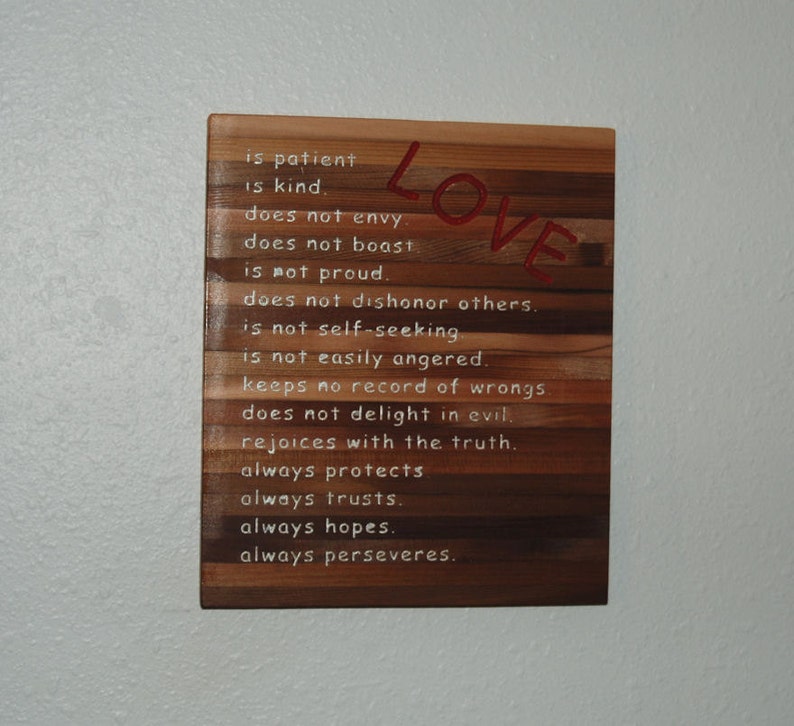 LOVE
is patient
is kind.
does not envy.
does not boast
is not proud.
does not dishonor others.
is not self-seeking.
is not easily angered.
keeps no record of wrongs
does not delight in evil.
rejoices with the truth.
always protects
always trusts.
always hopes.
always perseveres.